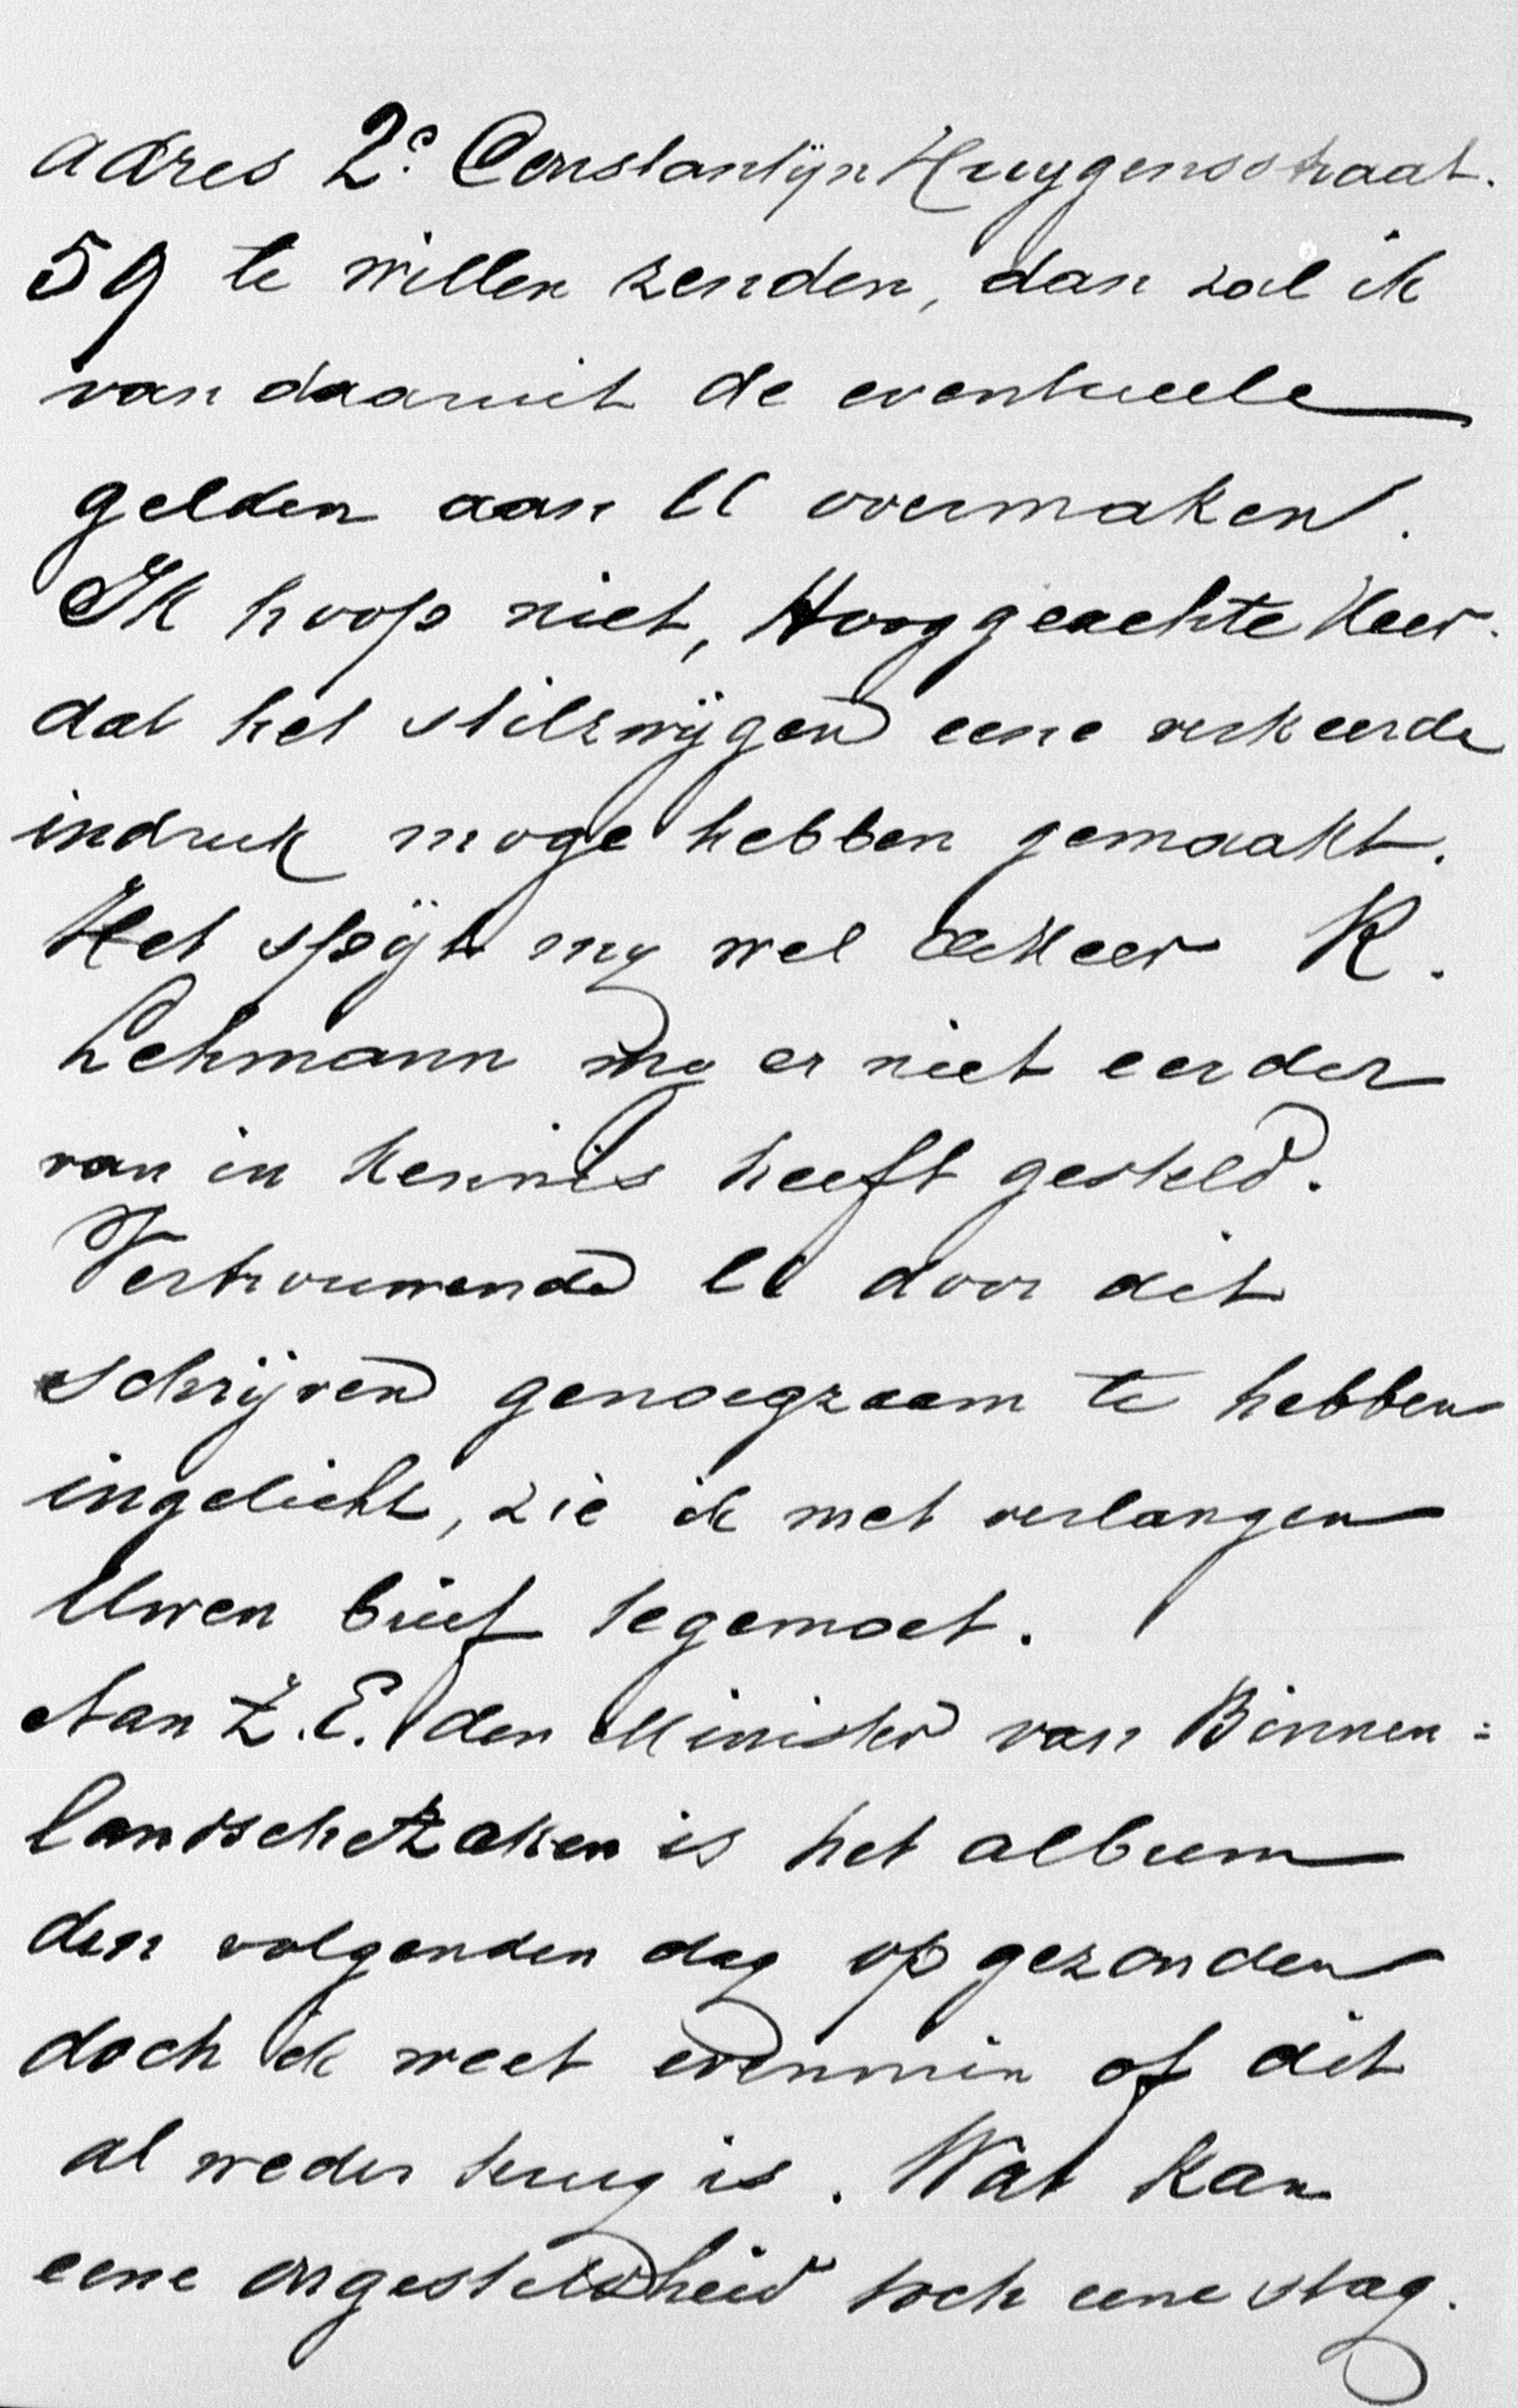 adres 2e Constantijn Huygensstraat.
59 te willen zenden, dan zal ik
van daaruit de eventueele
gelden aan U overmaken.
Ik hoop niet, Hooggeachte Heer.
dat het stilzwijgen eene verkeerde
indruk moge hebben gemaakt.
Het spijt my wel de Heer K.
Lehmann my er niet eerder
van in kennis heeft gesteld.
Vertrouwende U door dit
schrijven genoegzaam te hebben
ingelicht, zie ik met verlangen
Uwen brief tegemoet.
Aan Z.E. den Minister van Binnen=
landsche Zaken is het album
den volgenden dag opgezonden
doch ik weet evenmin of dit
al weder terug is. Wat kan
eene ongesteldheid toch eene slag.